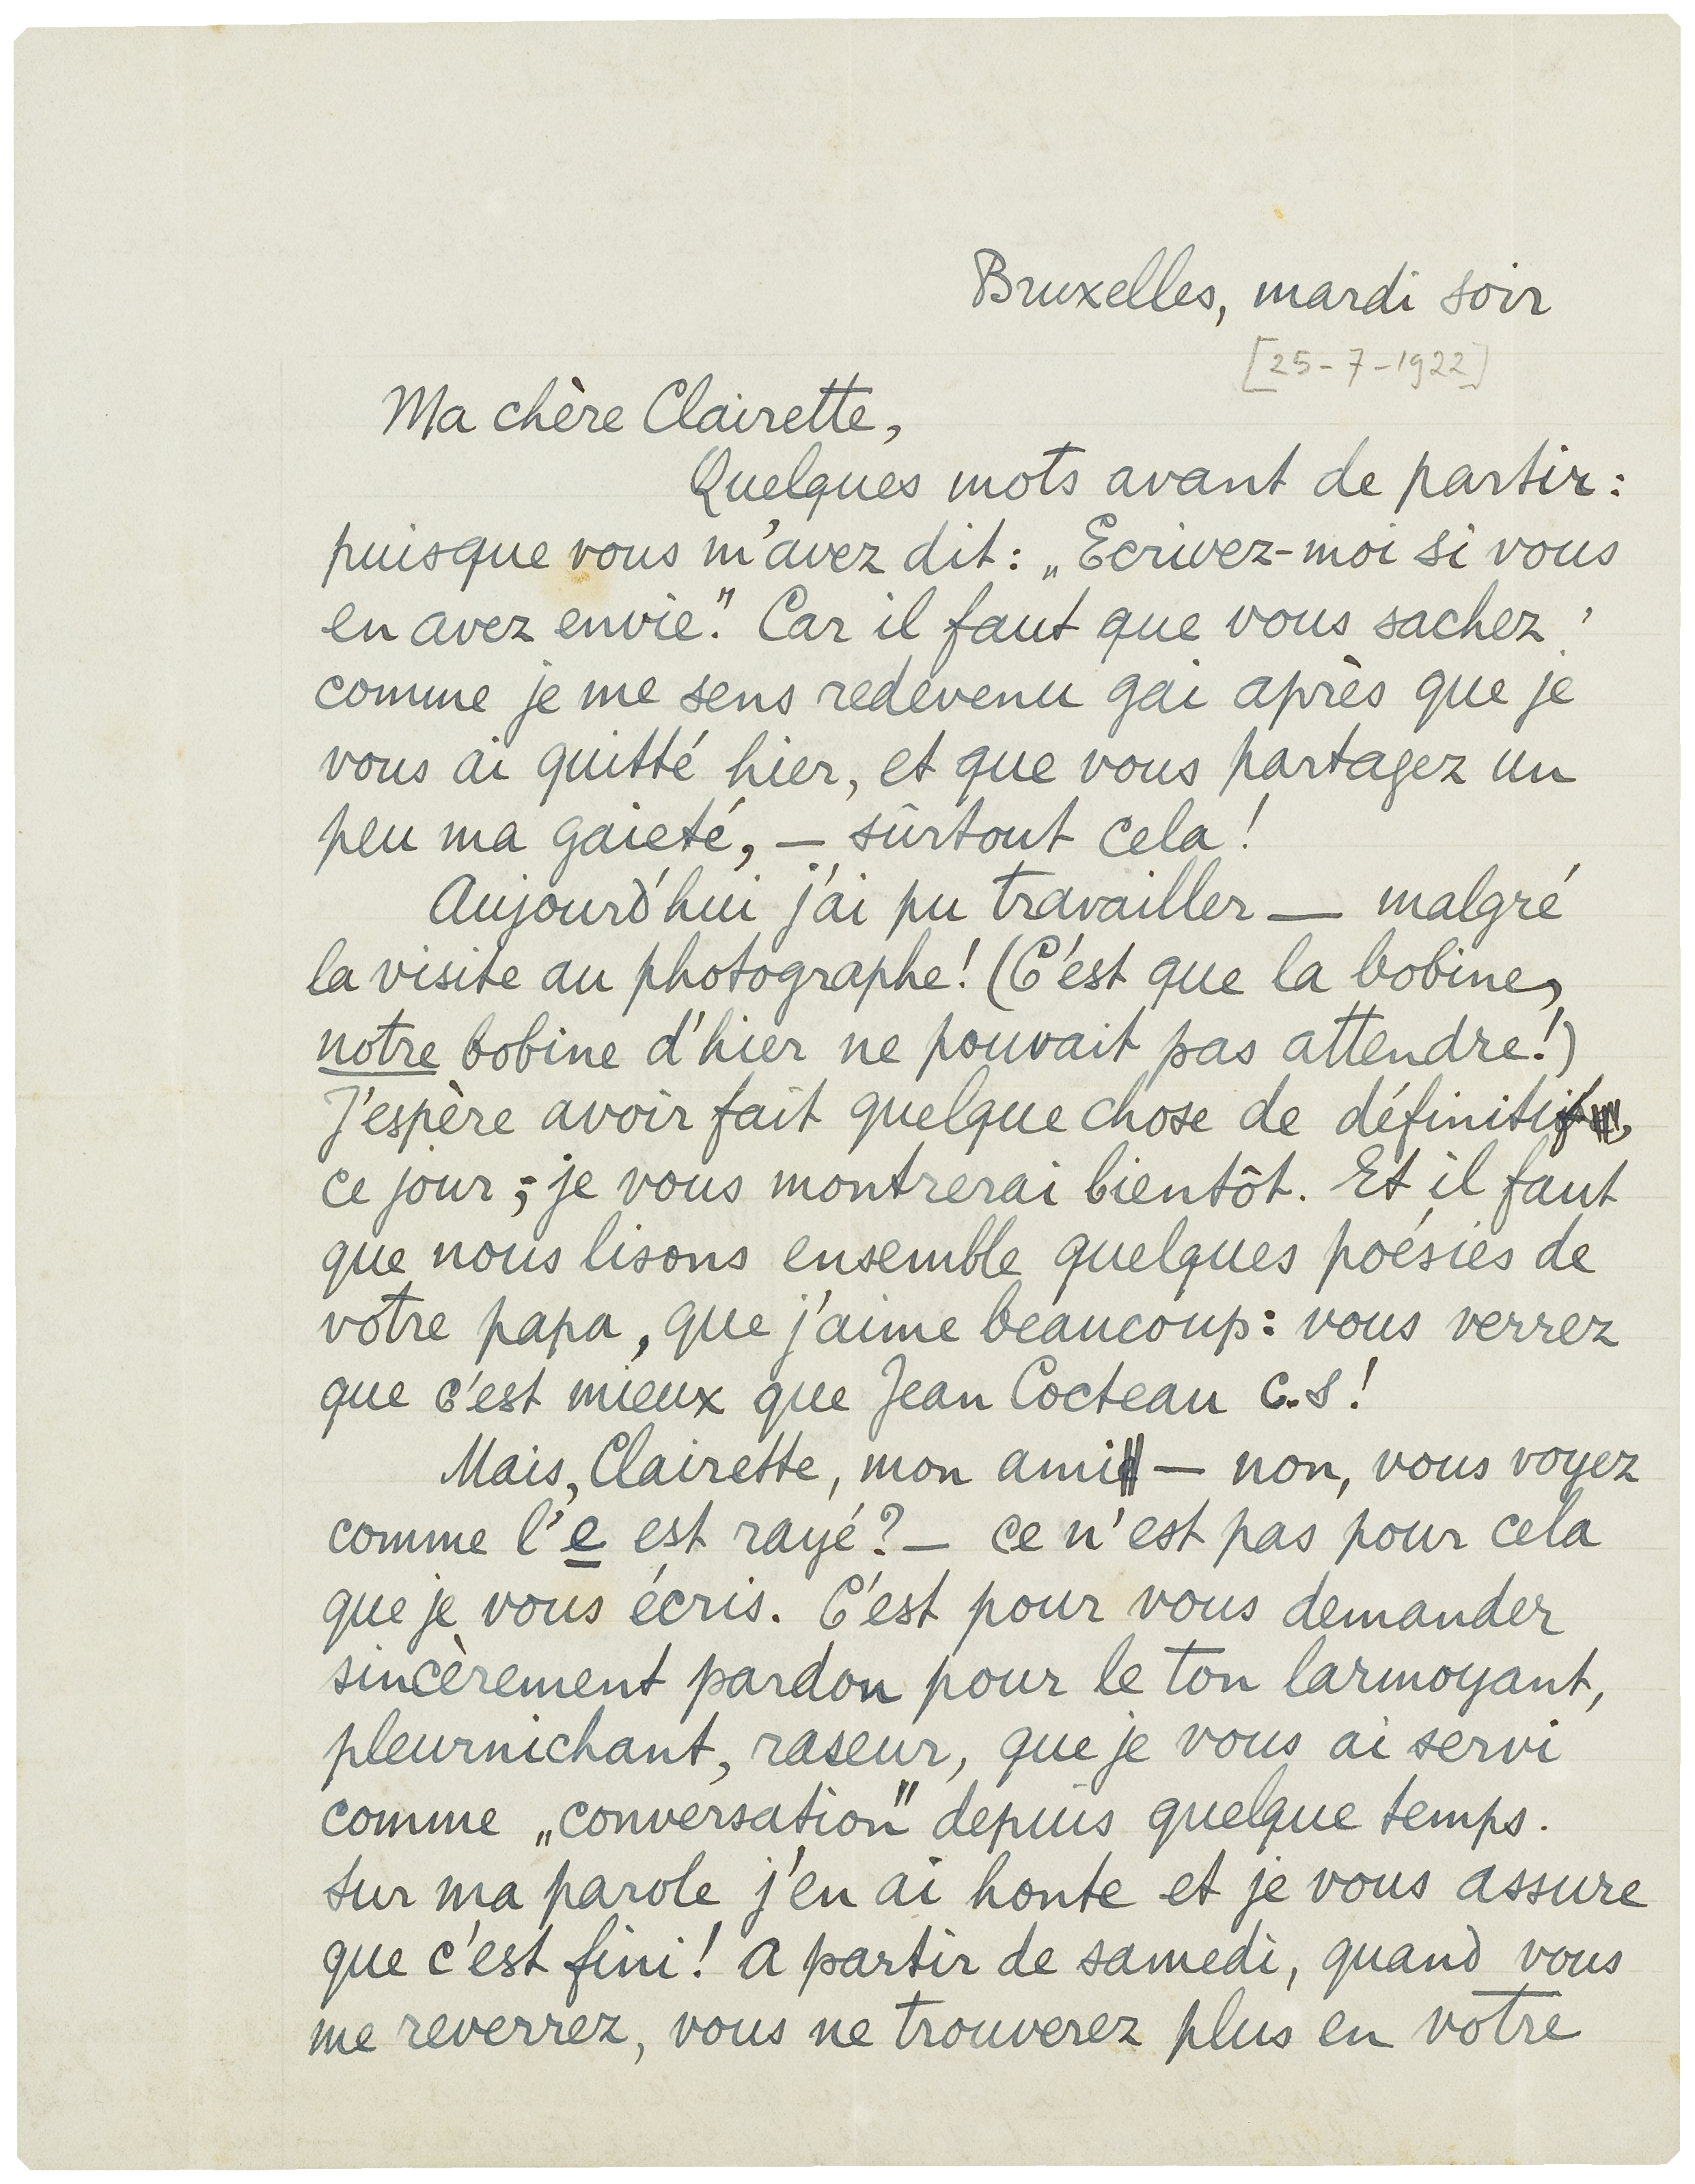 Bruxelles, mardi soir
[25-7-1922]
Ma chère Clairette,
Quelques mots avant de partir:
puisque vous m'avez dit: „Ecrivez-moi si vous
en avez envie." Car il faut que vous sachez
comme je me sens redevenu gai après que je
vous ai quitté hier, et que vous partagez un
peu ma gaieté, — sûrtout cela!
Aujourd'hui j'ai pu travailler — malgré
la visite au photographe! (C'est que la bobine,
notre bobine d'hier ne pouvait pas attendre!)
J'espère avoir fait quelque chose de définitif,
ce jour; je vous montrerai bientôt. Et il faut
que nous lisons ensemble quelques poésies de
votre papa, que j'aime beaucoup: vous verrez
que c'est mieux que Jean Cocteau c.s!
Mais, Clairette, mon ami — non, vous voyez
comme l'e est rayé? — ce n'est pas pour cela
que je vous écris. C'est pour vous demander
sincèrement pardon pour le ton larmoyant,
pleurnichant, raseur, que je vous ai servi
comme „conversation" depuis quelque temps.
Sur ma parole j'en ai honte et je vous assure
que c'est fini! A partir de samedi, quand vous
me reverrez, vous ne trouverez plus en votre